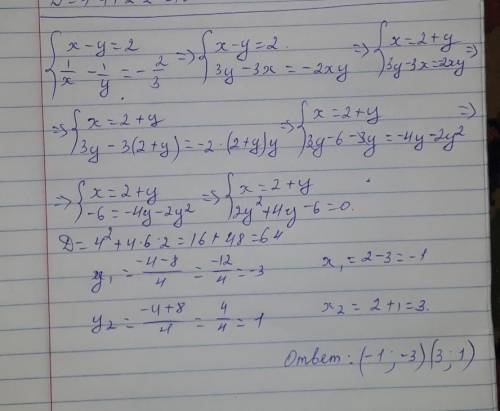 {x-y=2 1/x - 1/y = -2/3 => {x-y=2. 3y-3x=-2xy => {x=2+y 3y-3x=2xy =>
=> {x=2+y 3y-3(2+y)=-2·(2+y)y => {x=2+y 3y-6-3y=-4y-2y² =>
=> {x=2+y -6=-4y-2y² => {x=2+y 2y²+4y-6=0.
D=4²+4·6·2=16+48=64
y₁ = (-4-8)/4 = -12/4 = -3 x₁=2-3=-1
y₂ = (-4+8)/4 = 4/4 = 1 x₂=2+1=3.
Ответ: (-1; -3) (3; 1)